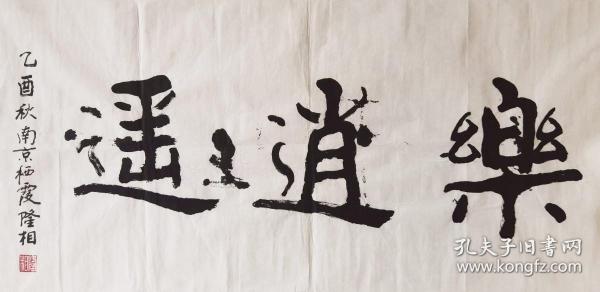 樂逍遥
乙酉秋南京栖霞隆相
孔夫子旧书网
www.kongfz.com